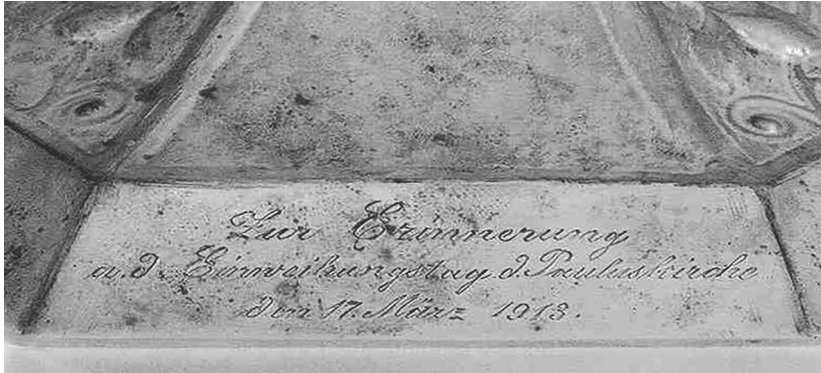 Zur Erinnerung
a. d. Einweihungstag d. Pauluskirche
den 17. März 1913.